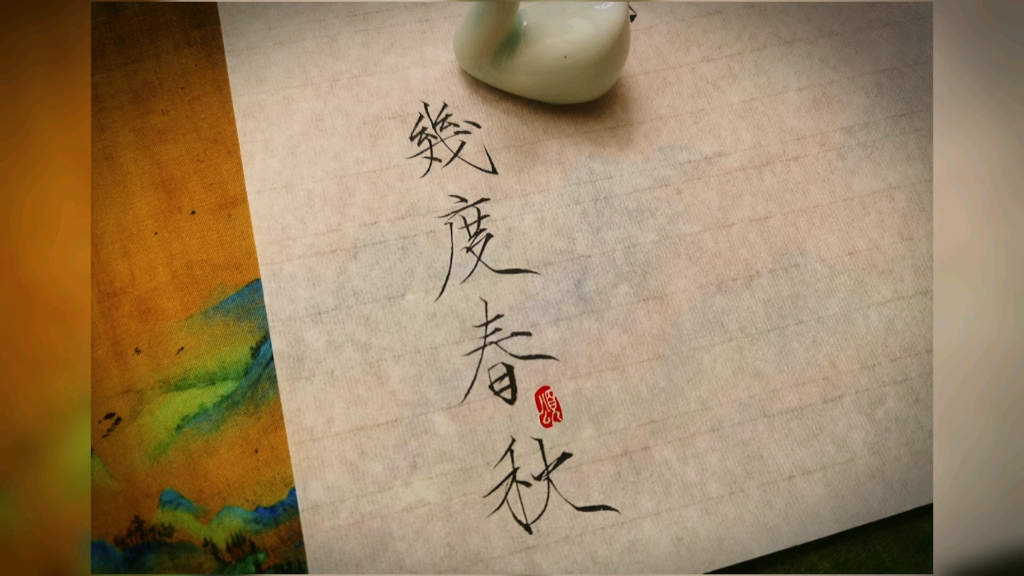 幾度春秋
頌